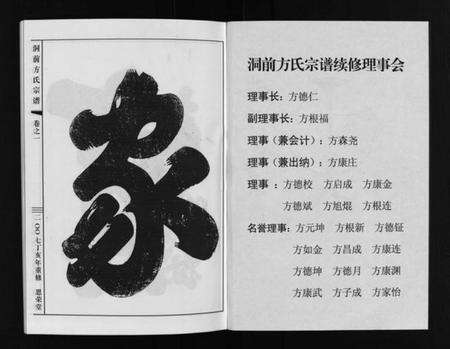 洞前方氏宗谱
卷之一
二〇〇七丁亥年重修
思荣堂
家
洞前方氏宗谱续修理事会
理事长：方德仁
副理事长：方根福
理事（兼会计）：方森尧
理事（兼出纳）：方康庄
理事：方德校 方启成 方康金
方德斌 方旭焜 方根连
名誉理事：方元坤 方根新 方德钲
方如金 方昌成 方康连
方德坤 方德月 方康渊
方康武 方子成 方家怡